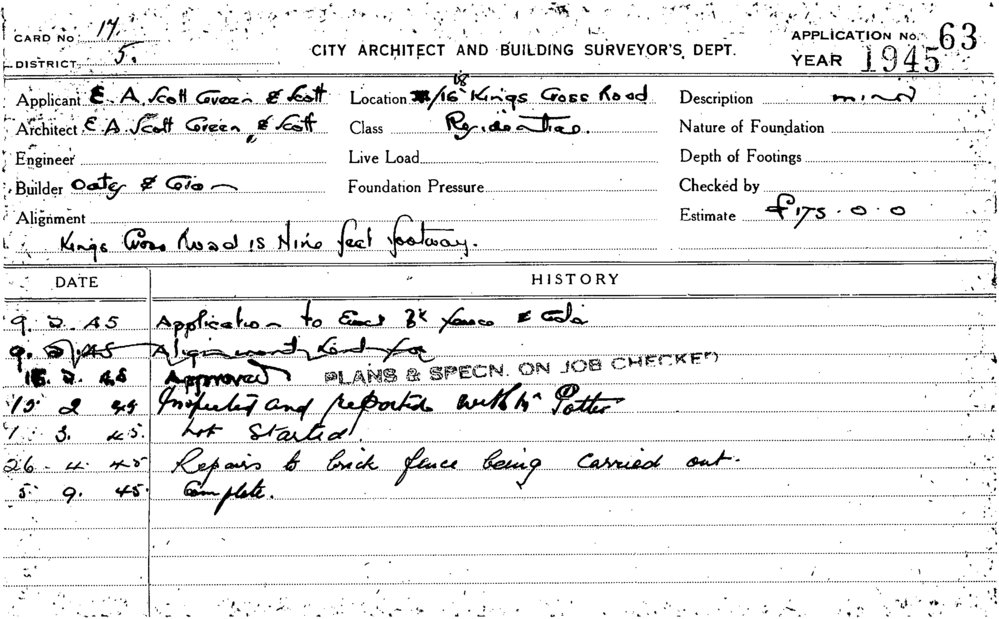 CARD No 17.
APPLICATION No. 63
DISTRICT 5.
CITY ARCHITECT AND BUILDING SURVEYOR'S DEPT.
YEAR 1945
Applicant E. A. Scott Green & Scott
Location /16 Kings Cross Road
Description minor
Architect E A Scott Green & Scott
Class Residential.
Nature of Foundation
Engineer
Live Load
Depth of Footings
Builder &
Foundation Pressure
Checked by
Alignment
Estimate £175.0.0
Kings Cross Road is Nine feet footway.
DATE HISTORY
9. 2. 45 Application to Erect Bk fence &
9. 2. 45 Alignment for
16. 2. 45 Approved PLANS & SPECN. ON JOB CHECKED
19 2 45 Inspected and reported with Mr Potter
1. 3. 45. Not Started.
26. 4. 45 Repairs to brick fence being carried out.
5. 9. 45. Complete.